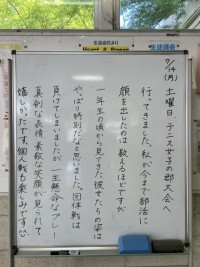 生徒会だより
7/14(月)
土曜日、テニス女子の郡大会へ
行ってきました。私が今まで部活に
顔を出したのは数えるほどですが
一年生の頃から見てきた彼女たちの姿は
やっぱり特別だなと思いました。団体戦は
負けてしまいましたが一生懸命なプレー
真剣な表情、素敵な笑顔が見られて
嬉しかったです。個人戦も楽しみです